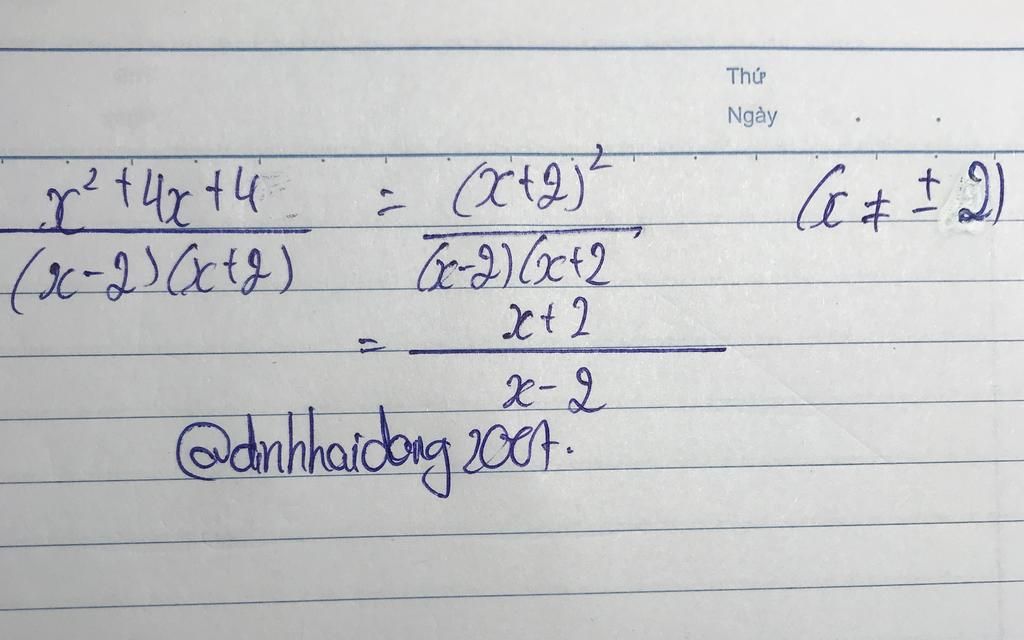 Thứ
Ngày . .
x² + 4x + 4 = (x+2)² (x ≠ ± 2)
(x-2)(x+2) (x-2)(x+2
= x+2
x-2
@dinhhaidong2007.